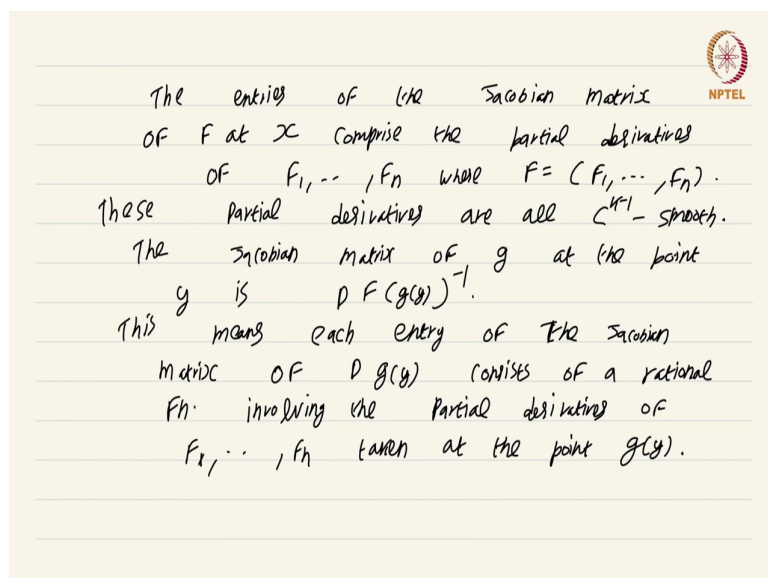 NPTEL
The entries of the Jacobian matrix
of F at x comprise the partial derivatives
of F₁, ‥ , Fn where F = (F₁, ⋯ , Fn).
These Partial derivatives are all C^{k-1} - smooth.
The Jacobian matrix of g at the point
y is D F (g(y))^{-1}.
This means each entry of the Jacobian
matrix of D g(y) consists of a rational
Fn. involving the Partial derivatives of
F₁, ‥ , Fn taken at the point g(y).